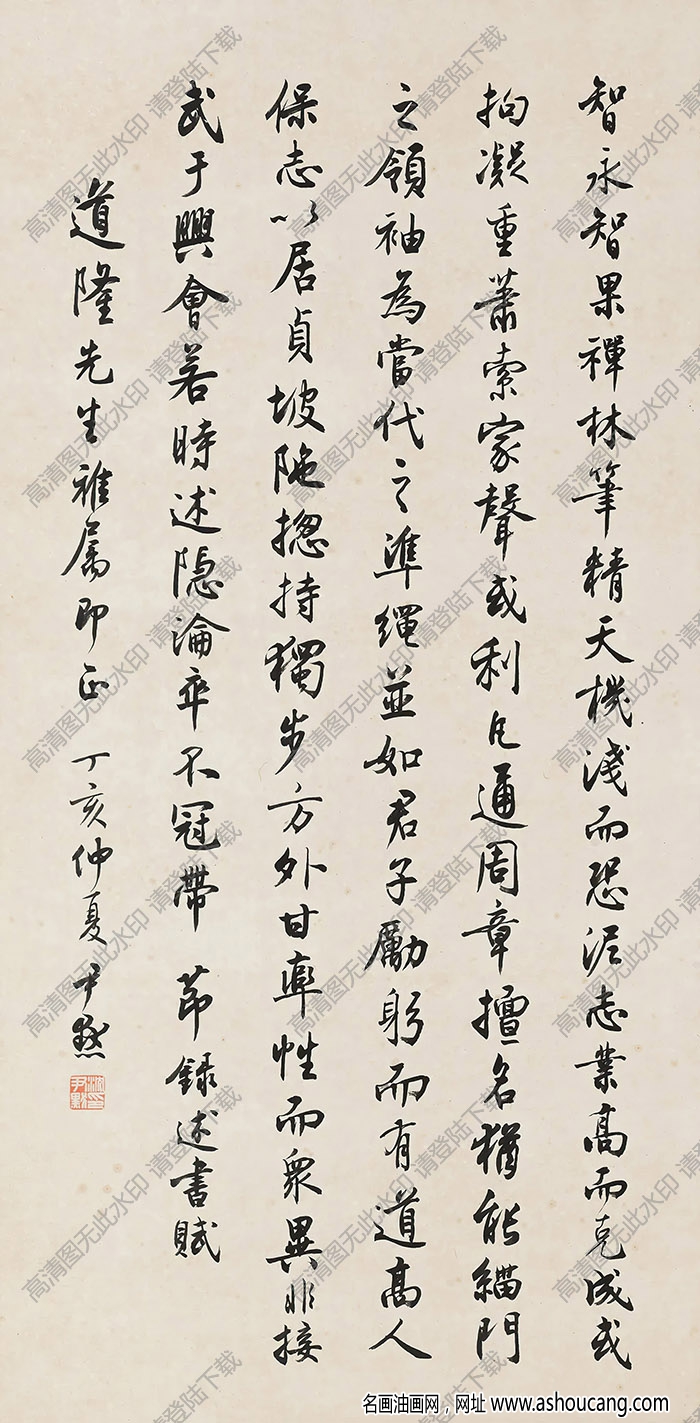 智永智果禪林筆精天機淺而恐泥志業高而克成或
拘凝重蕭索家聲或利凡通周章擅名猶能緇門
之領袖為當代之準繩並如君子勵躬而有道高人
保志以居貞坡陁揔持獨步方外甘率性而眾異非接
武于興會若時述隐淪卒不冠帶 節録述書賦
道隆先生雅属即正 丁亥仲夏 尹默
沈尹默印
高清图无此水印 请登陆下载
名画油画网，网址 www.ashoucang.com